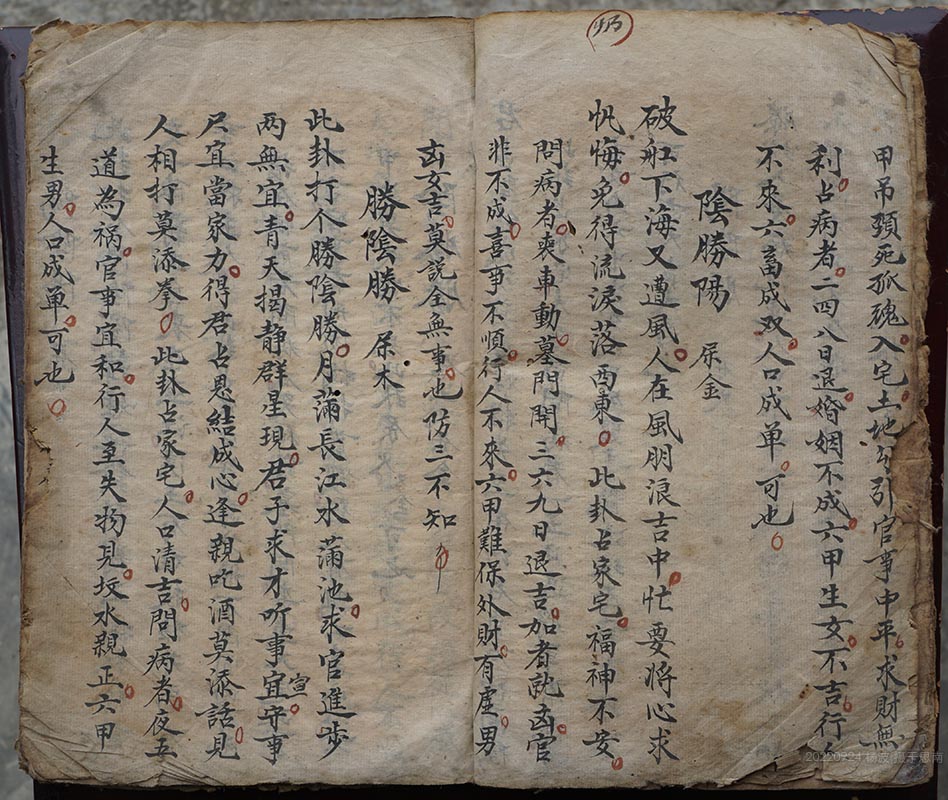 甲吊頸死孤魂入宅土地公引官事中平求財無
利占病者二四八日退婚姻不成六甲生女不吉行人
不來六畜成双人口成单可也
陰勝陽 屬金
破舡下海又遭風人在風朋浪吉中忙要將心求
忏悔免得流淚落西東此卦占家宅福神不安
問病者喪車動墓門開三六九日退吉加者訧凶官
非不成喜事不順行人不來六甲難保外財有虛男
凶女吉莫説全無事也防三不知
勝陰勝 屬木
此卦打个勝陰勝月滿長江水滿池求官進步
两無宜青天揭静群星現君子求才听事宜宣守事
只宜當家力得君占恩結成心逢親吃酒莫添話見
人相打莫添拳此卦占家宅人口清吉問病者夜五
道為祸官事宜和行人至失物見坟水親正六甲
生男人口成单可也
20220224 杨波 摄于思南